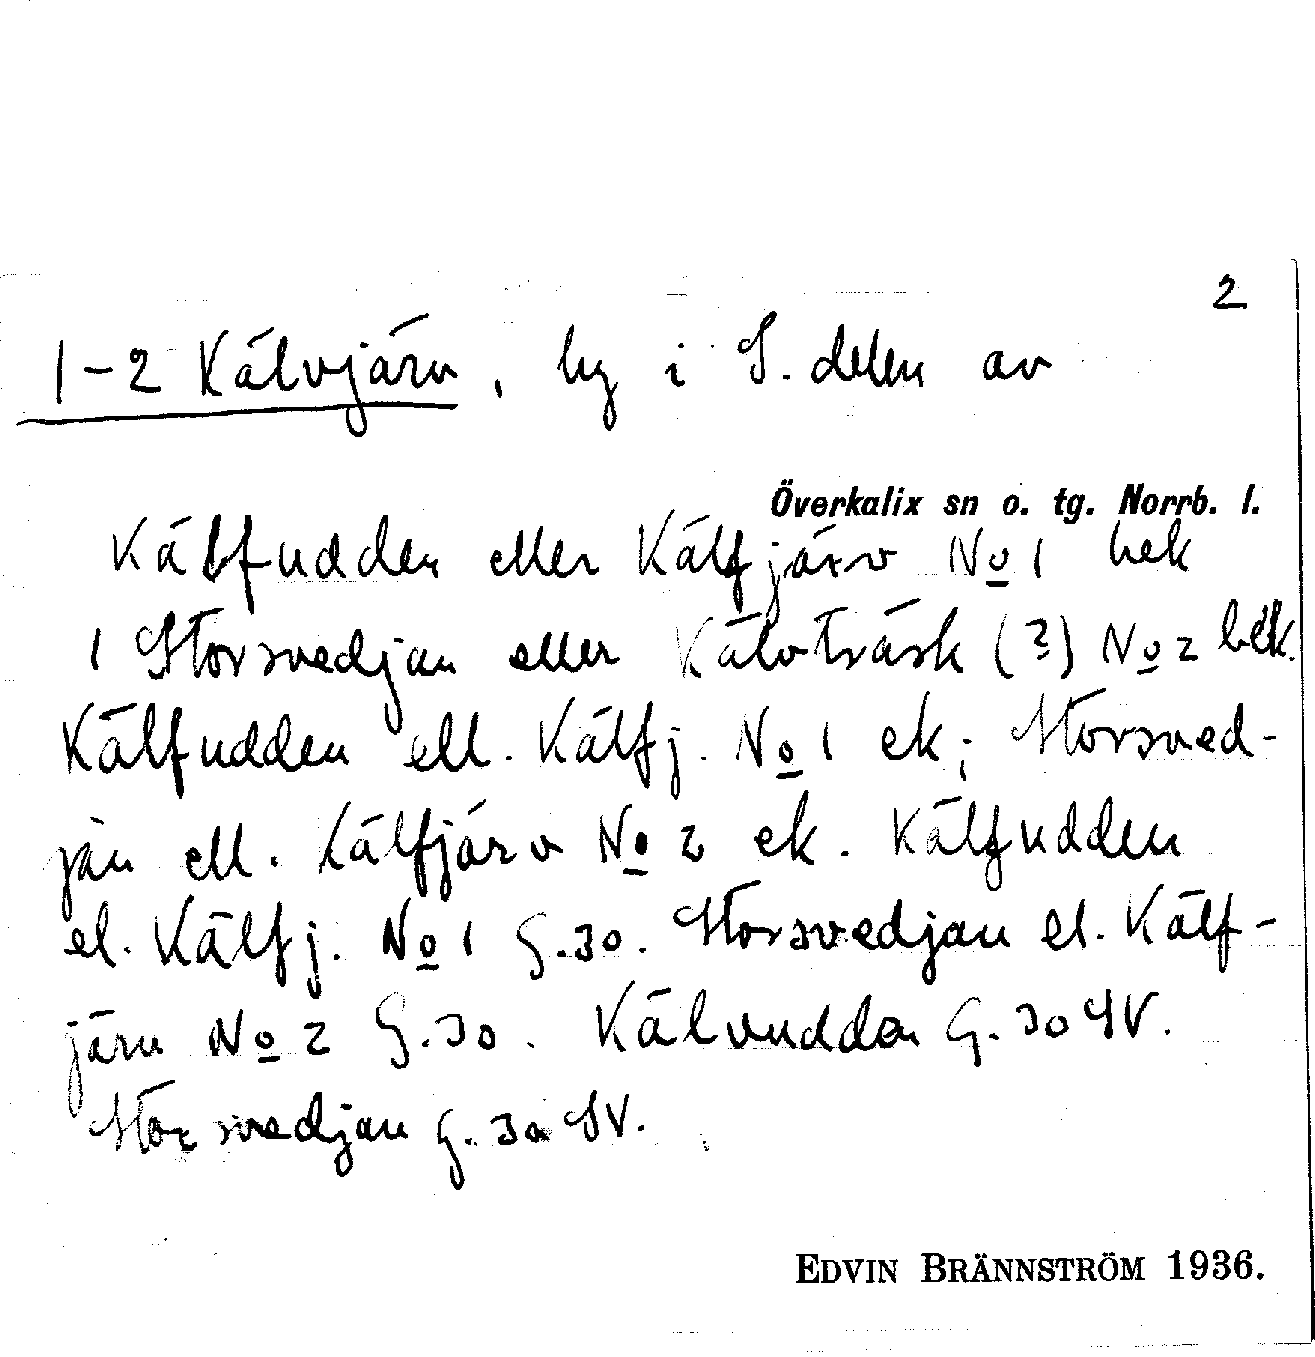 2
1-2 Kälvjärv, by i S. delen av
Överkalix sn o. tg. Norrb. l.
Kälfudden eller Kälfjärv No 1 bek
1 Storsvedjan eller Kälvträsk (?) No 2 bek.
Kälfudden ell. Kälfj. No 1 ek; Storsved-
jan ell. Kälfjärv No 2 ek. Kälfudden
el. Kälfj. No 1 G.30. Storsvedjan el. Kälf-
järv No 2 G.30. Kälvudden G.30 SV.
Storsvedjan G.30 SV.
EDVIN BRÄNNSTRÖM 1936.